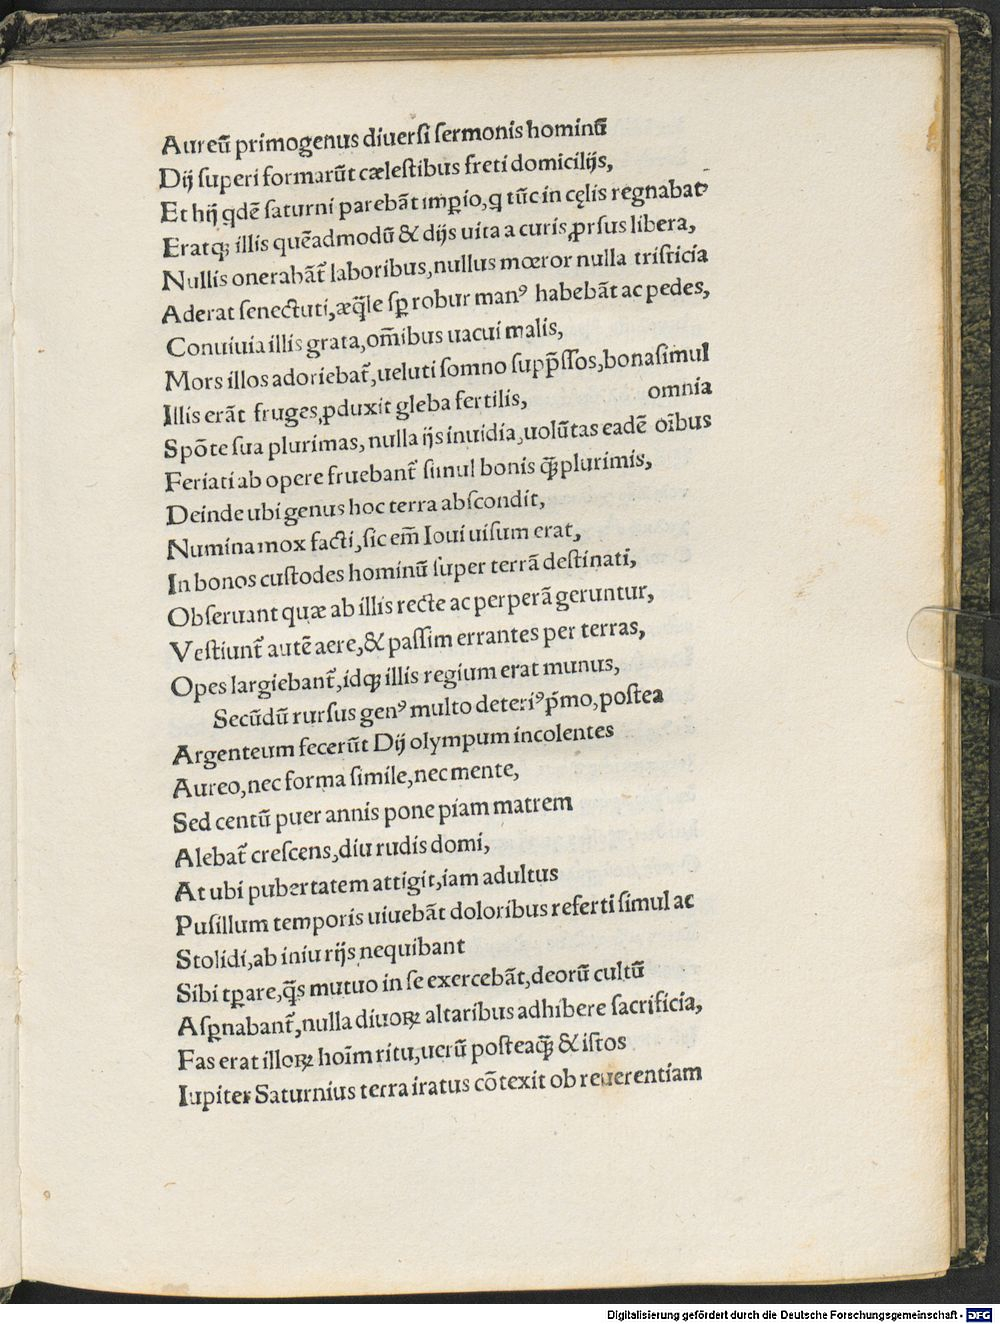 Aureū primogenus diuersi sermonis hominū
Dij superi formarūt cælestibus freti domicilijs,
Et hij qdē saturni parebāt imꝑio, q tūc in cęlis regnabat
Eratqꝫ illis quēadmodū & dijs uita a curis ꝓrsus libera,
Nullis onerabāt̃ laboribus, nullus mœror nulla tristicia
Aderat senectuti, æq̃le sꝑ robur manꝰ habebāt ac pedes,
Conuiuia illis grata, om̄ibus uacui malis,
Mors illos adoriebat̃, ueluti somno supp̃ssos, bona simul
omnia
Illis erāt fruges, ꝓduxit gleba fertilis,
Spōte sua plurimas, nulla ijs inuidia, uolūtas eadē oībus
Feriati ab opere fruebant̃ simul bonis q̃ꝫ plurimis,
Deinde ubi genus hoc terra abscondit,
Numina mox facti, sic em̄ Ioui uisum erat,
In bonos custodes hominū super terrā destinati,
Obseruant quæ ab illis recte ac perperā geruntur,
Vestiunt̃ autē aere, & passim errantes per terras,
Opes largiebant̃, idqꝫ illis regium erat munus,
Secūdū rursus genꝰ multo deteriꝰ p̃mo, postea
Argenteum fecerūt Dij olympum incolentes
Aureo, nec forma simile, nec mente,
Sed centū puer annis pone piam matrem
Alebat̃ crescens, diu rudis domi,
At ubi pubertatem attigit, iam adultus
Pusillum temporis uiuebāt doloribus referti simul ac
Stolidi, ab iniurijs nequibant
Sibi tꝑare, q̃s mutuo in se exercebāt, deorū cultū
Asꝑnabant̃, nulla diuoꝝ altaribus adhibere sacrificia,
Fas erat illoꝝ hoīm ritu, uerū posteaq̃ꝫ & istos
Iupiter Saturnius terra iratus cōtexit ob reuerentiam
Digitalisierung gefördert durch die Deutsche Forschungsgemeinschaft - DFG